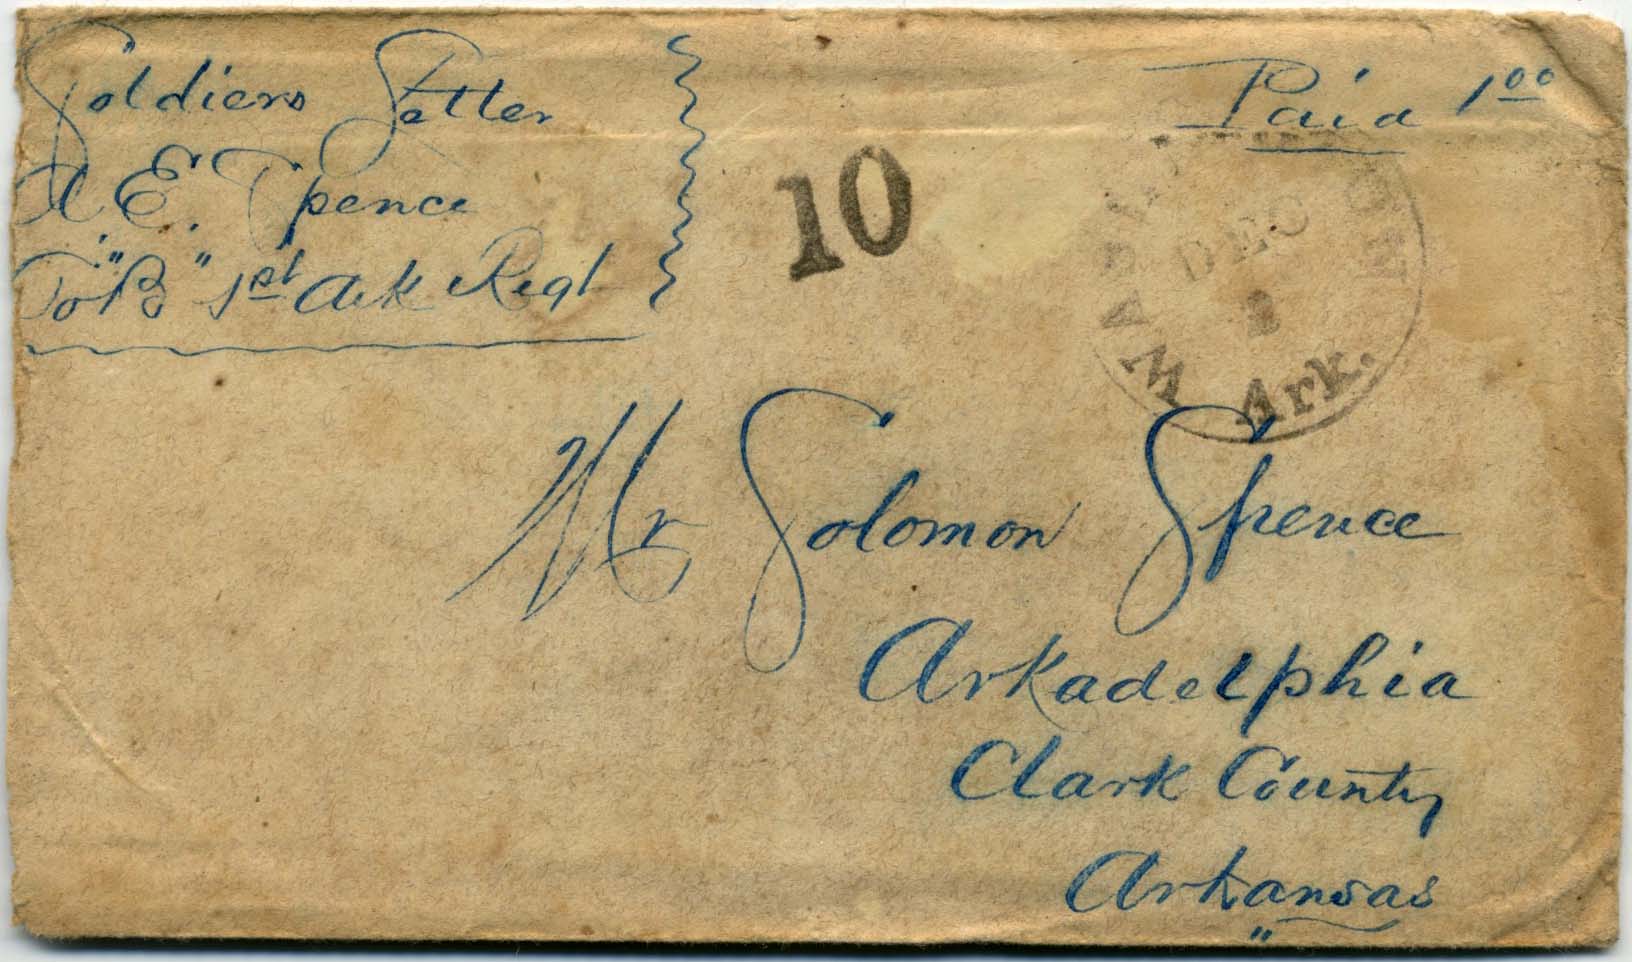 Soldiers Letter
A. E. Spence
Co "B" 1st Ark Regt
Paid 1.00
10
WASHINGTON
DEC
2
Ark.
Mr Solomon Spence
Arkadelphia
Clark County
Arkansas